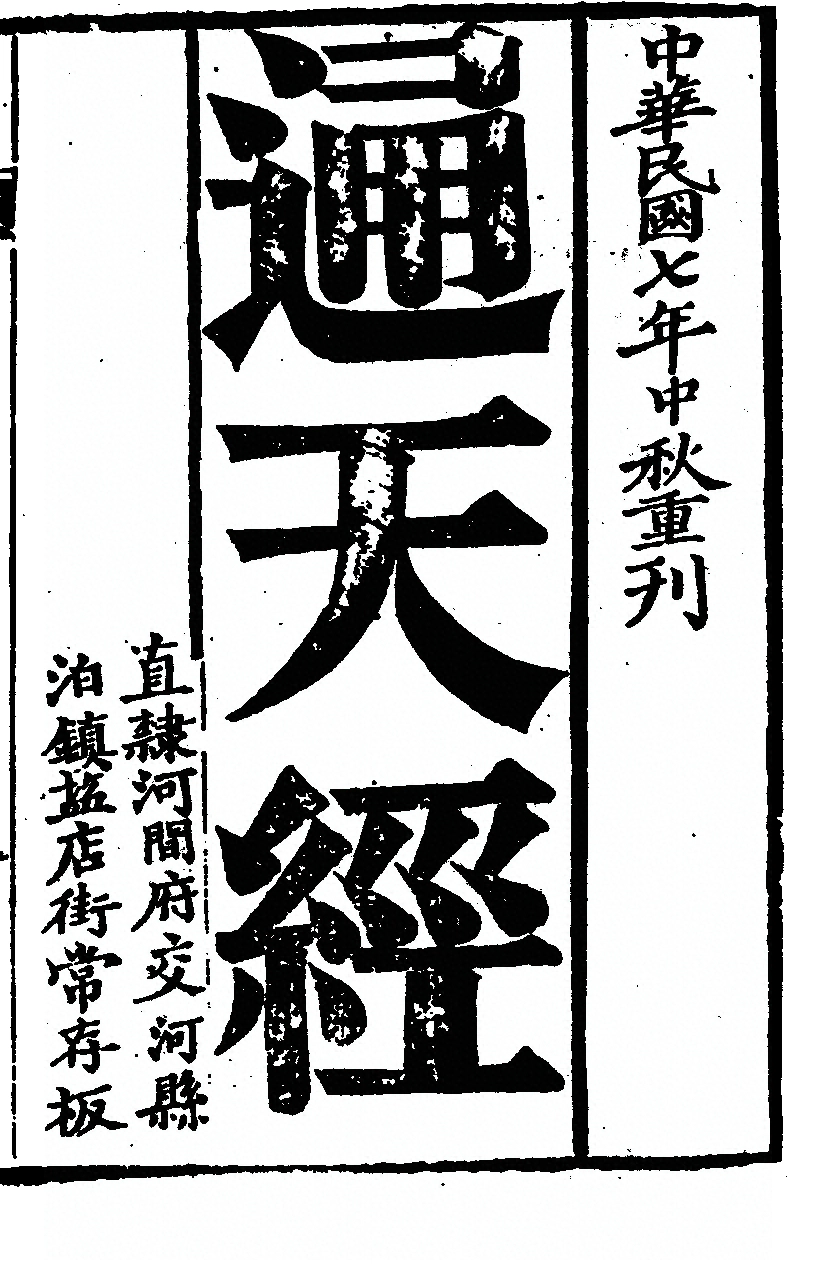 中華民國七年中秋重刊
通天經
直隸河間府交河縣
泊鎮盐店街常存板